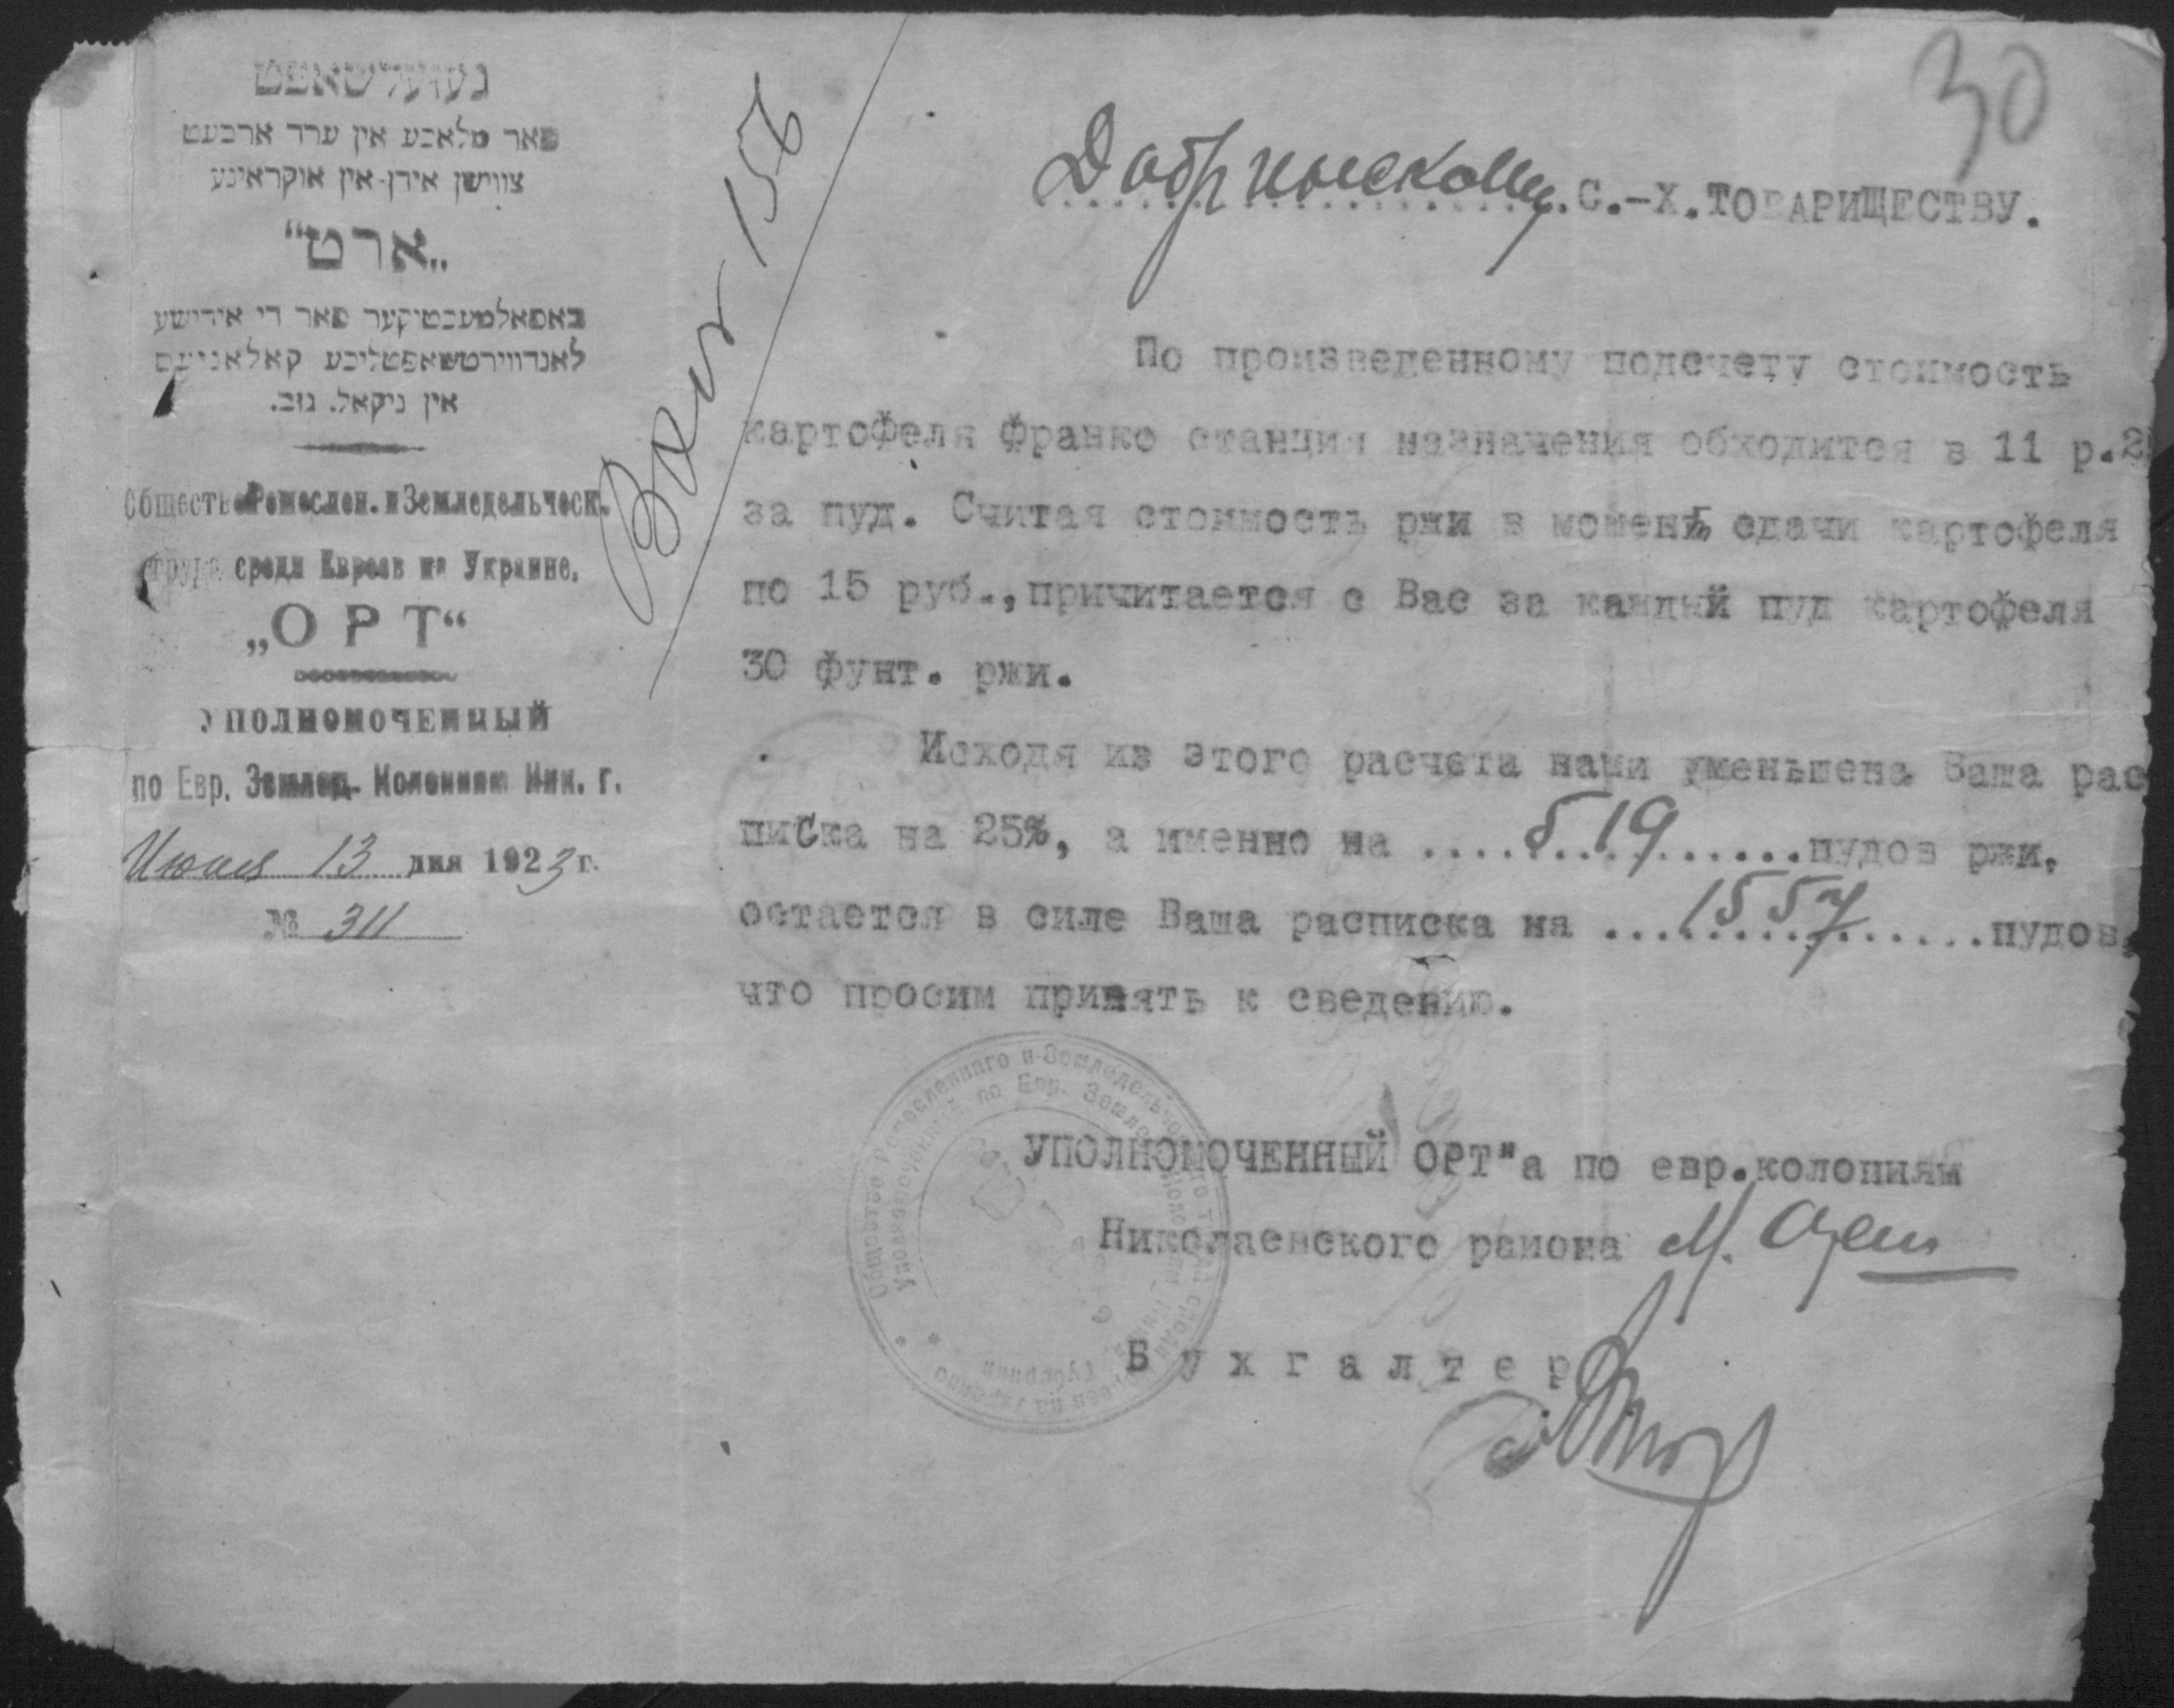 30
געזעלשאפט
פאר מלאכע אין ערד ארבעט
צווישן אידן-אין אוקראינע
„ארט“
באפאלמעכטיקער פאר די אידישע
לאנדווירטשאפטליכע קאלאניעס
אין ניקאל. גוב.
Обществ Ремеслен. и Земледельческ.
труда среди Евреев на Украине.
„ОРТ“
УПОЛНОМОЧЕННЫЙ
по Евр. Землед. Колониям Ник. г.
Июня 13 дня 1923 г.
№ 311
156
Добринскому С.-Х.ТОВАРИЩЕСТВУ.
По произведенному подсчету стоимость
картофеля франко станция назначения обходится в 11 р.2
за пуд. Считая стоимость ржи в момент сдачи картофеля
по 15 руб.,причитается с Вас за каждый пуд картофеля
30 фунт. ржи.
Исходя из этого расчета нами уменьшена Ваша рас
писка на 25%, а именно на ....519....пудов ржи,
остается в силе Ваша расписка на ....1557....пудов,
что просим принять к сведению.
Общество Ремесленнаго и Земледельческаго труда среди Евреев на Украине
Уполномоченный по Евр. Землед. Колониям Никол. губернии
УПОЛНОМОЧЕННЫЙ ОРТ"а по евр.колониям
Николаевского района М.
Бухгалтер